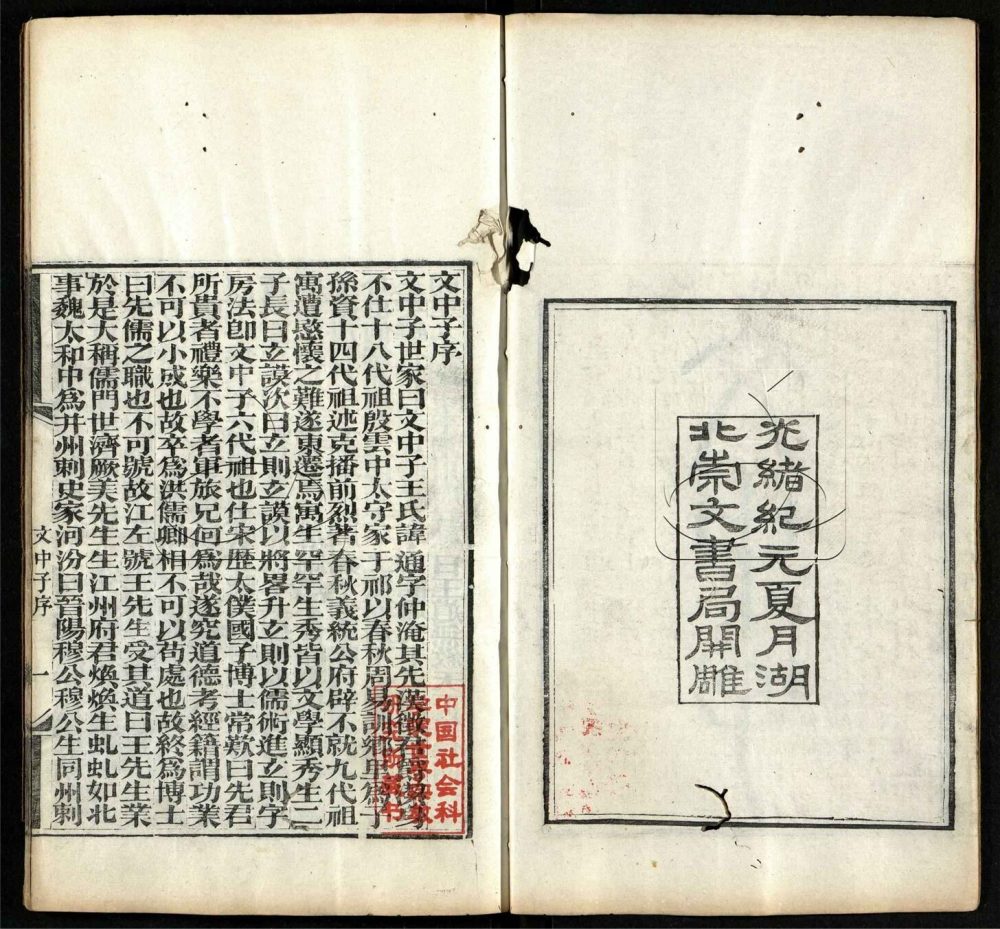 光緒紀元夏月湖
北崇文書局開雕
文中子序
文中子世家曰文中子王氏諱通字仲淹其先漢徵君霸絜身
不仕十八代祖殷雲中太守家于祁以春秋周易訓鄉里爲子
孫資十四代祖述克播前烈著春秋義統公府辟不就九代祖
寓遭愍懷之難遂東遷焉寓生罕罕生秀皆以文學顯秀生二
子長曰立謨次曰立則立謨以將畧升立則以儒術進立則字
房法卽文中子六代祖也仕宋歷太僕國子博士常歎曰先君
所貴者禮樂不學者軍旅兄何爲哉遂究道德考經籍謂功業
不可以小成也故卒爲洪儒卿相不可以苟處也故終爲博士
曰先儒之職也不可號故江左號王先生受其道曰王先生業
於是大稱儒門世濟厥美先生生江州府君煥煥生虬虬如北
事魏太和中爲并州刺史家河汾曰晉陽穆公穆公生同州刺
文中子序
一
中国社会科
学院世界宗教
研究所藏书